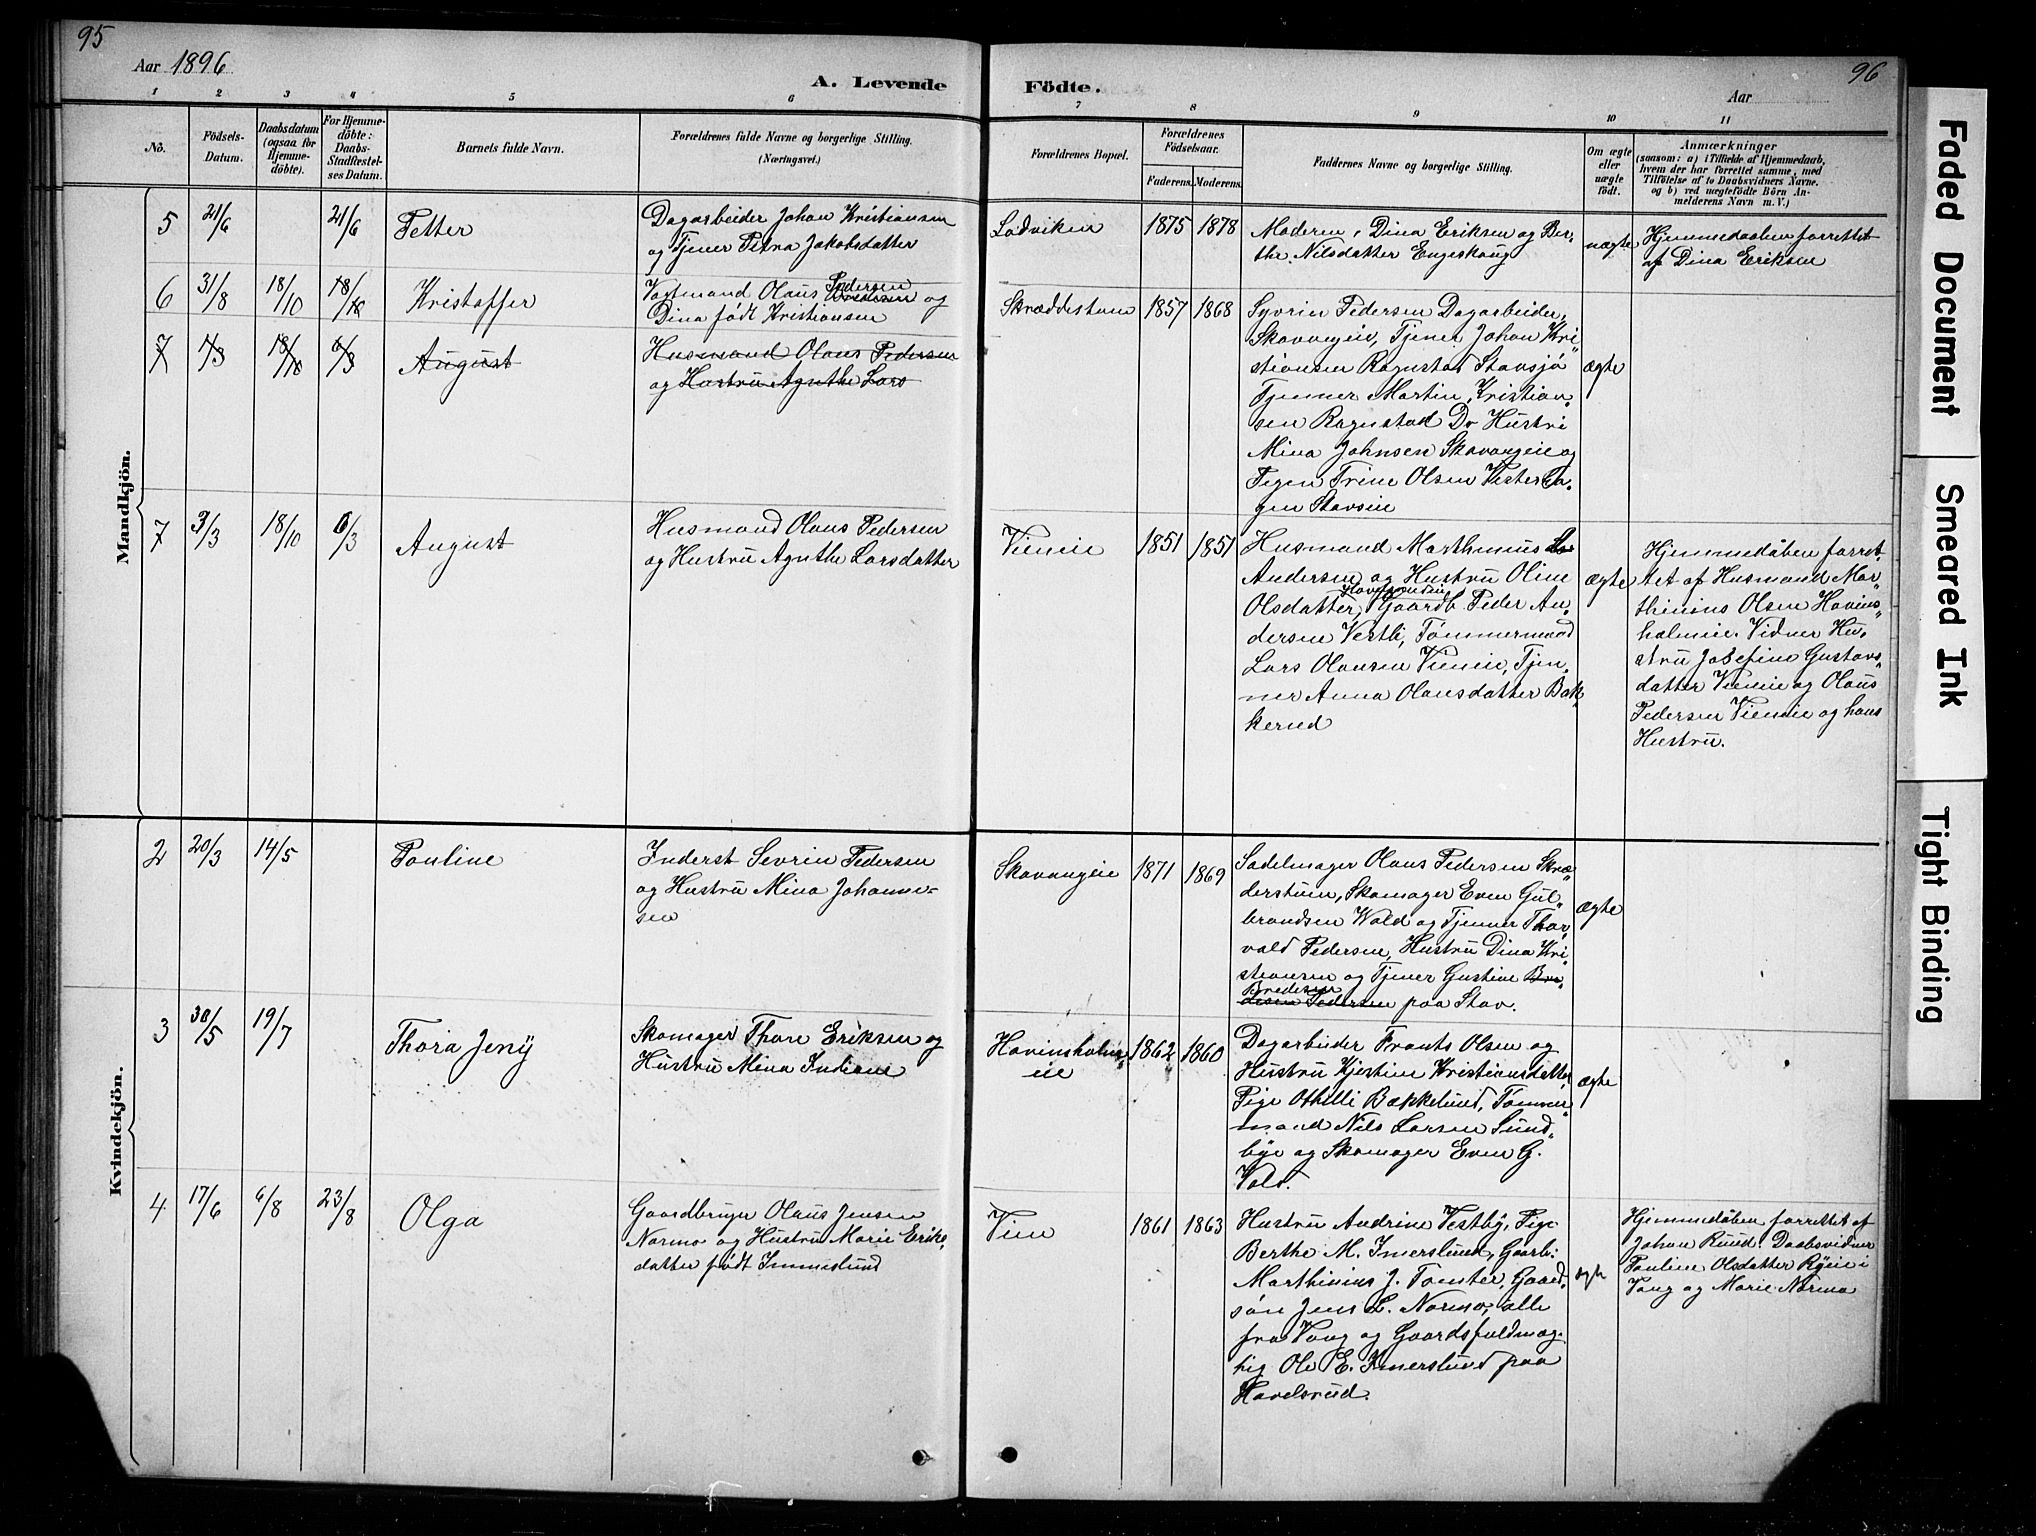 95
Aar 1896
A. Levende
Födte.
Aar
96
1 2 3 4 5 6 7 8 9 10 11
No.
Födsels-
Datum.
Daabsdatum
(ogsaa for
Hjemme-
döbte).
For Hjemme-
döbte:
Daabs-
Stadfæstel-
ses Datum.
Barnets fulde Navn.
Forældrenes fulde Navne og borgerlige Stilling.
(Næringsvei.)
Forældrenes Bopæl.
Forældrenes
Födselsaar.
Faderens. Moderens.
Faddernes Navne og borgerlige Stilling.
Om ægte
eller
uægte
födt.
Anmærkninger
(saasom: a) i Tilfælde af Hjemmedaab,
hvem der har forrettet samme, med
Tilföielse af to Daabsvidners Navne,
og b) ved uægtefödte Börn An-
melderens Navn m. V.)
Mandkjön.
5 21/6 21/6 Petter
Dagarbeider Johan Kristiansen
og Tjener Petra Jakobsdatter
Ladviken 1875 1878
Moderen, Dina Eriksen og Ber-
the Nilsdatter Engeskoug
uægte
Hjemmedaaben forrettet
af Dina Eriksen
6 31/8 18/10 18/10 Kristoffer
Pedersen
Olaus og
Dina født Kristiansen
Skræddestuen 1857 1868
Syvrin Pedersen Dagarbeider,
Skavangeie, Tjener Johan Kri
stiansen Ragnstad Stavsjø
Tjenner Martin Kristian-
sen Ragnstad Do Hustru
Mina Johnsen Skavangeie og
Pigen Trine Olsen
Stavseie
ægte
7 18/10 6/3 August
Husmand Olaus Pedersen
og Hustru Agnthe Lars
7 3/3 18/10 6/3 August
Husmand Olaus Pedersen
og Hustru Agnthe Larsdatter
Vieneie 1851 1851
Husmand Marthinius
Andersen og Hustru Oline
Olsdatter, Gaardb. Peder An-
dersen Vestli, Tømmermand
Lars Olausen Vieneie, Tjen-
ner Anna Olausdatter Bak-
kerud
ægte
Hjemmedåben forret-
tet af Husmand Mar-
thinius Olsen Hovins-
holmeie. Vidner Hu-
stru Josefine Gustavs-
datter Vieneie og Olaus
Pedersen Vieneie og hans
Hustru.
Kvindekjön.
2 20/3 14/5 Pauline
Inderst Sevrin Pedersen
og Hustru Mina Johanne-
sen
Skavangeie 1871 1869
Sadelmager Olaus Pedersen Skræ-
derstuen, Skomager Even Gul-
brandsen Wald og Tjenner Thor-
vald Pedersen, Hustru Dina Kri-
stiansen og Tjener Gustine Bre-
Bredesen
desen Pedersen paa Stav.
ægte
3 30/5 19/7 Thora Jenÿ
Skomager Thore Eriksen og
Hustru Mina Indiane
Hovinsholm-
eie
1862 1860
Dagarbeider Frants Olsen og
Hustru Kjestine Kristiansdatter
Pige Othilli Bækkelund, Tømmer-
mand Nils Larsen Sund-
bye og Skomager Even G.
Vald.
ægte
4 17/6 6/8 23/8 Olga
Gaardbruger Olaus Jensen
Narmo og Hustru Marie Eriks-
datter født Immeslund
Vien 1861 1863
Hustru Andrine Vestby, Pige
Berthe M. Imerslund, Gaarb.
Marthinius J. Tomter, Gaard-
søn Jens L. Narmo, alle
fra Vang og Gaardsfuldmæg-
tig Ole E. Imerslund paa
Havelsrud.
ægte
Hjemmedåben forrettet af
Johan Ruud. Daabsvidner
Pauline Olsdatter Ryeie i
Vang og Marie Narmo
Faded Document
Smeared Ink
Tight Binding